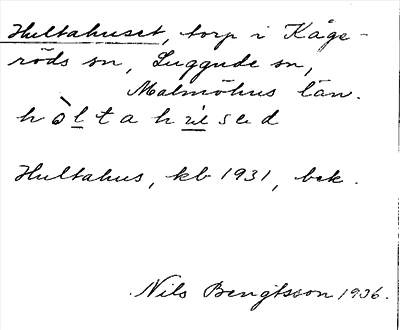 Hultahuset, torp i Kåge-
röds sn, Luggude sn,
Malmöhus län.
hòltahused
Hultahus, kb 1931, bek.
Nils Bengtsson 1936.